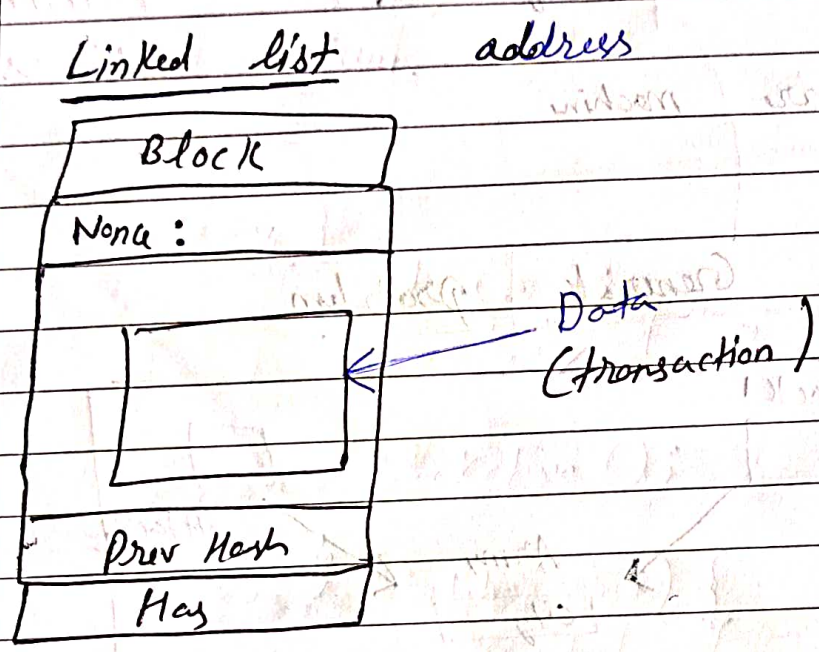 Linked list address
Block
Nonce :
Data
(transaction)
Prev Hash
Has